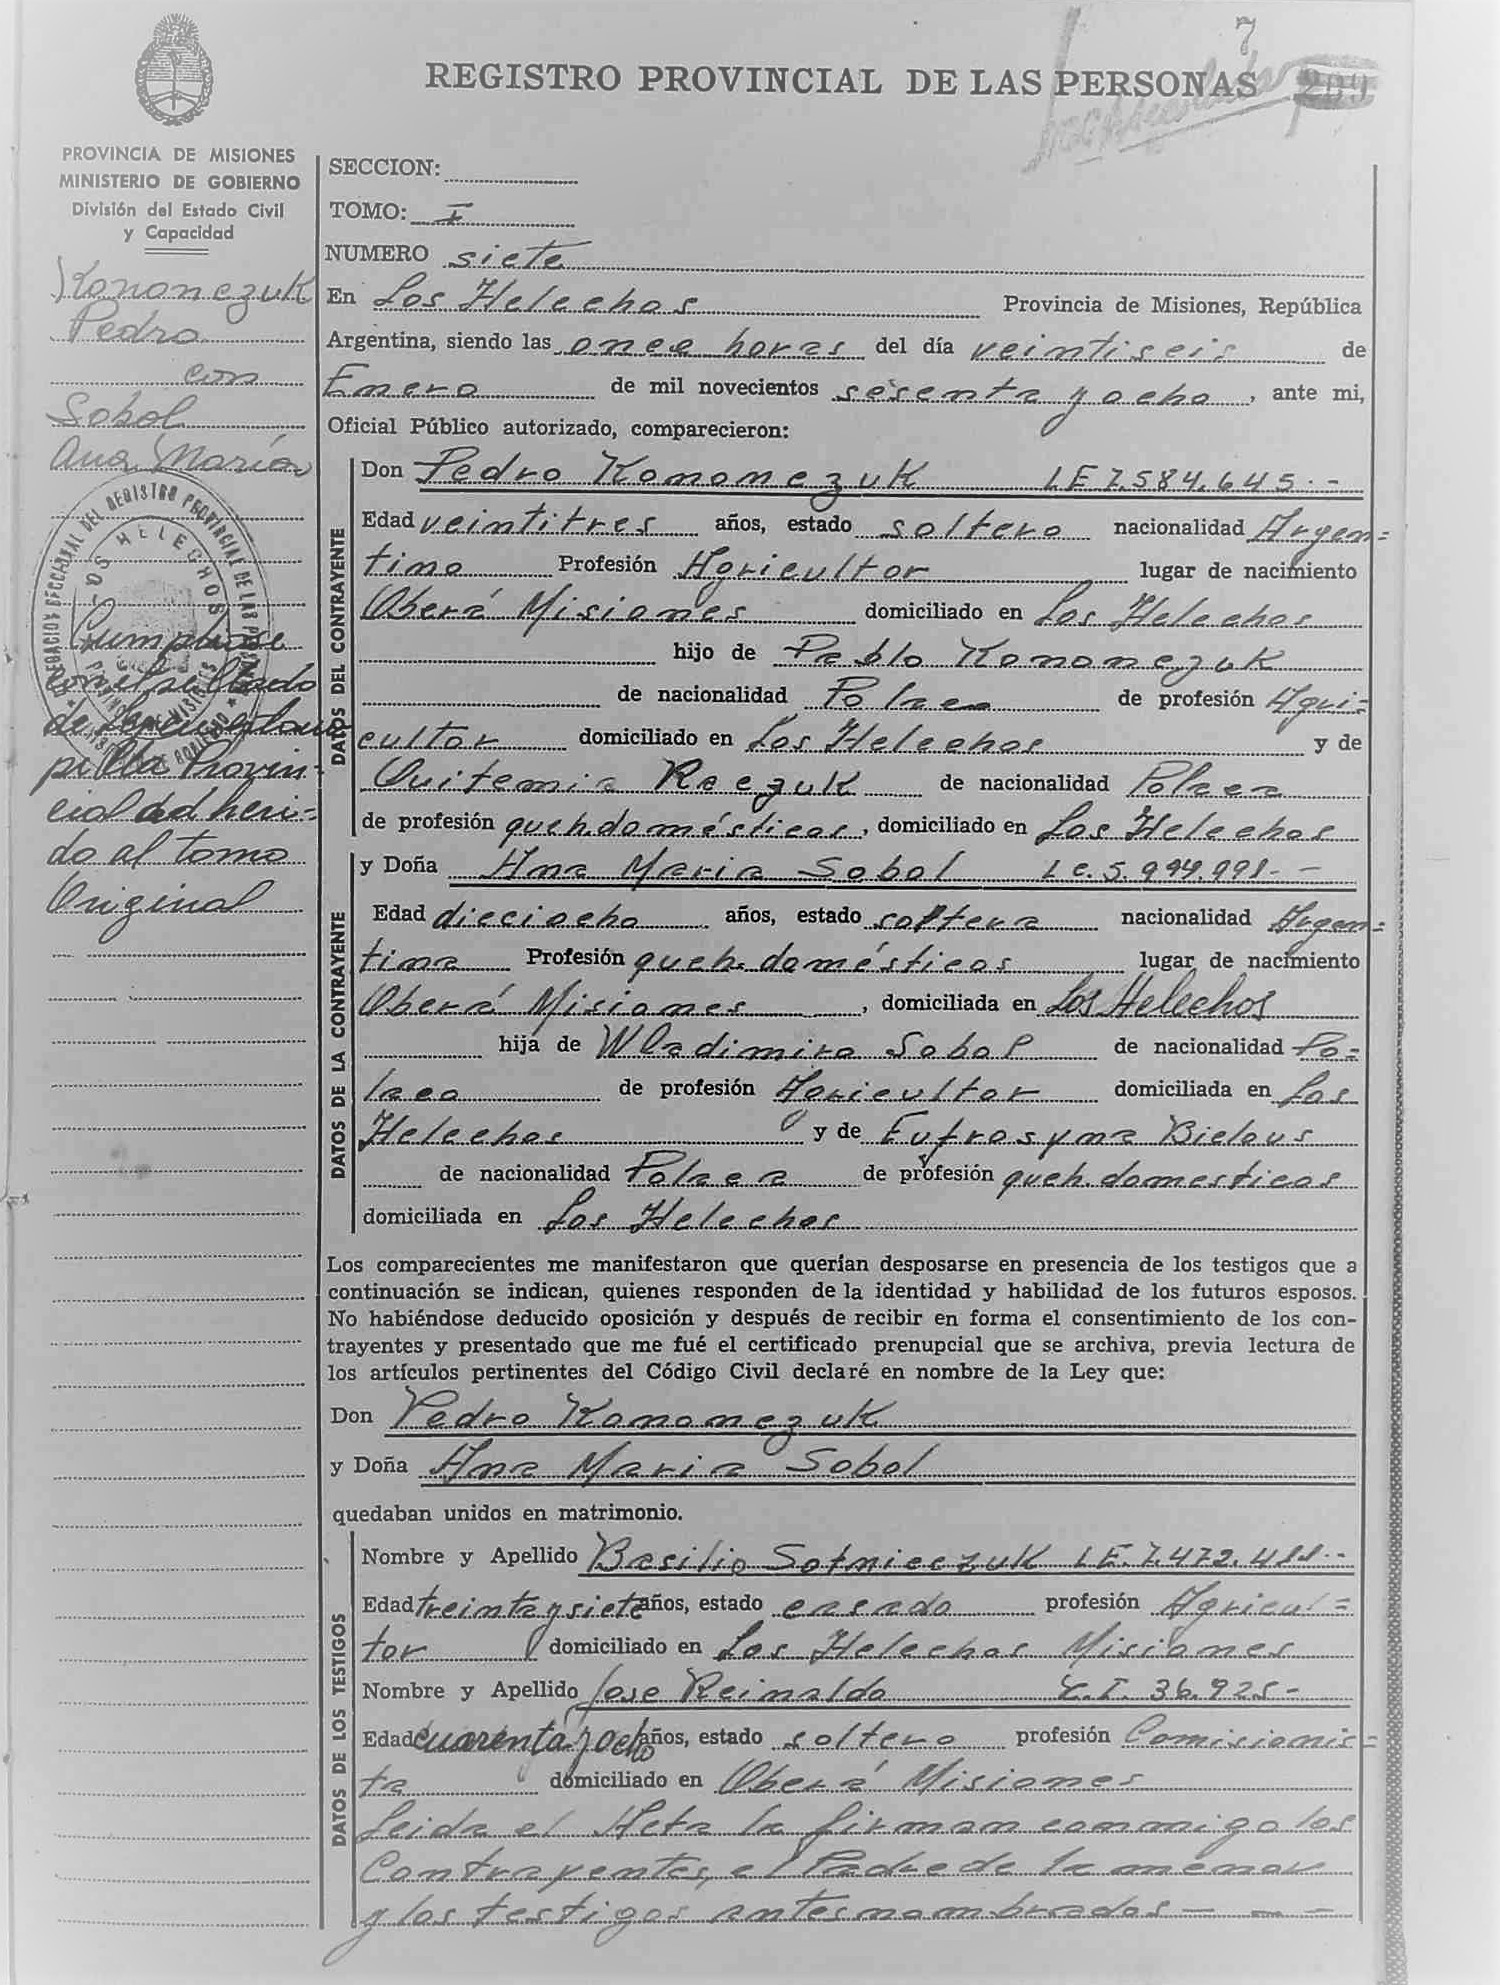 7
REGISTRO PROVINCIAL DE LAS PERSONAS 209
PROVINCIA DE MISIONES
MINISTERIO DE GOBIERNO
División del Estado Civil
y Capacidad
Kononczuk
Pedro
con
Sobol
Ana María
DEL REGISTRO PROVINCIAL DE LAS
LOS HELECHOS
Cumplase
do al tomo
Original
SECCION:
TOMO: I
NUMERO siete
En Los Helechos Provincia de Misiones, República
Argentina, siendo las once horas del día veintiseis de
Enero de mil novecientos sesenta y ocho, ante mi,
Oficial Público autorizado, comparecieron:
DATOS DEL CONTRAYENTE
Don Pedro Kononczuk LE 7.584.645.-
Edad veintitres años, estado soltero nacionalidad Argen=
tino Profesión Agricultor lugar de nacimiento
Oberá Misiones domiciliado en Los Helechos
hijo de Pablo Kononczuk
de nacionalidad Polaco de profesión Agri-
cultor domiciliado en Los Helechos y de
Quitemia Raczuk de nacionalidad Polaca
de profesión queh. domésticos, domiciliado en Los Helechos
DATOS DE LA CONTRAYENTE
y Doña Ana Maria Sobol LC. 5.994.991.- -
Edad dieciocho años, estado soltera nacionalidad Argen=
tina Profesión queh. domésticos lugar de nacimiento
Oberá Misiones, domiciliada en Los Helechos
hija de Wladimiro Sobol de nacionalidad Po=
laco de profesión Agricultor domiciliada en Los
Helechos y de Eufrosyna Bielous
de nacionalidad Polaca de profesión queh. domesticos
domiciliada en Los Helechos
Los comparecientes me manifestaron que querían desposarse en presencia de los testigos que a
continuación se indican, quienes responden de la identidad y habilidad de los futuros esposos.
No habiéndose deducido oposición y después de recibir en forma el consentimiento de los con-
trayentes y presentado que me fué el certificado prenupcial que se archiva, previa lectura de
los artículos pertinentes del Código Civil declaré en nombre de la Ley que:
Don Pedro Kononczuk
y Doña Ana Maria Sobol
quedaban unidos en matrimonio.
DATOS DE LOS TESTIGOS
Nombre y Apellido Basilio Sotnieczuk LE. 7.472.411.-
Edad treinta y siete años, estado casado profesión Agricul=
tor domiciliado en Los Helechos Misiones
Nombre y Apellido Jose Reinaldo C.I. 36.925-
Edad cuarenta y ocho años, estado soltero profesión Comisionis=
ta domiciliado en Oberá Misiones
Leida el Acta la firman conmigo los
Contrayentes, el Padre de la menor
y los testigos antes nombrados - - -